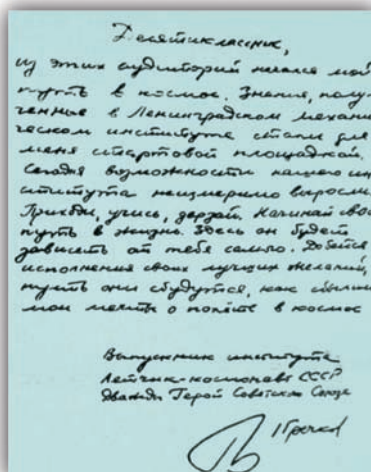 Десятиклассник,
из этих аудиторий начался мой
путь в космос. Знания, полу-
ченные в Ленинградском механи-
ческом институте стали для
меня стартовой площадкой.
Сегодня возможности нашего ин-
ститута неизмеримо выросли.
Приходи, учись, дерзай. Начинай свой
путь в жизнь. Здесь он будет
зависеть от тебя самого. Добейся
исполнения своих лучших желаний,
пусть они сбудутся, как сбылись
мои мечты о полёте в космос
Выпускник института
Летчик-космонавт СССР
Дважды Герой Советского Союза
Гречко